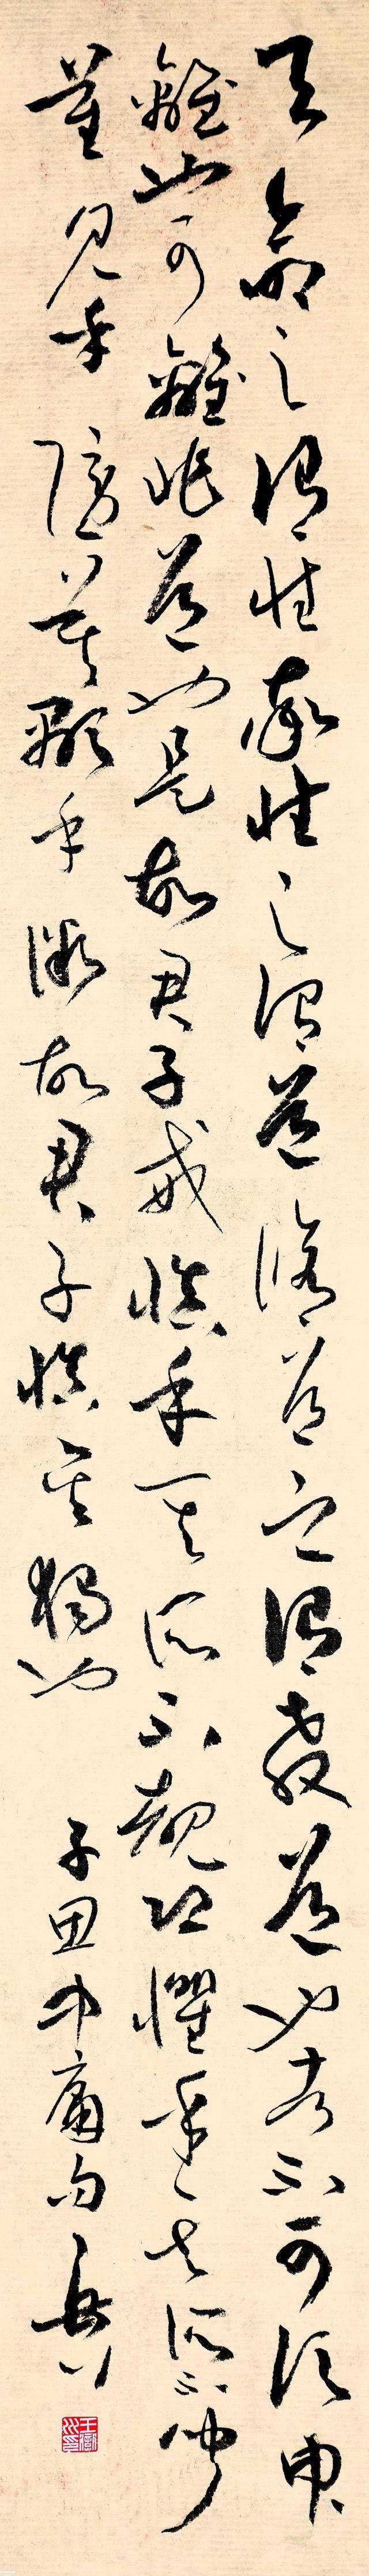 天命之謂性率性之謂道脩道之謂教道也者不可須臾
離也可離非道也是故君子戒慎乎其所不覩恐懼乎其所不聞
莫見乎隱莫顯乎微故君子慎其獨也 子思中庸句